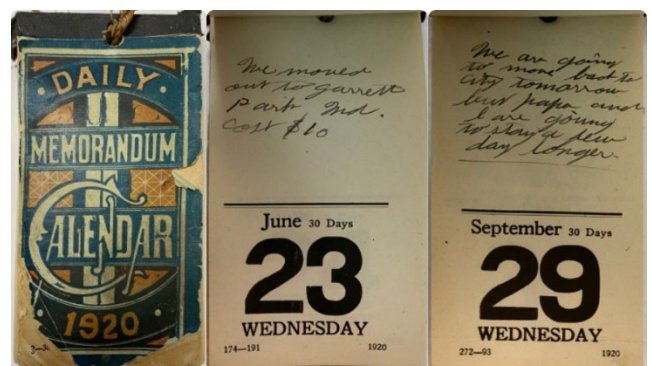 DAILY
MEMORANDUM
CALENDAR
1920
We moved
out to garrett
Park Md.
Cost $10
June 30 Days
23
WEDNESDAY
174—191 1920
We are going
to move back to
city tomorrow
but papa and
I are going
to stay a few
day longer.
September 30 Days
29
WEDNESDAY
272—93 1920